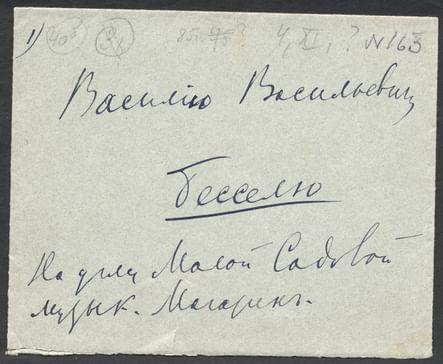 1) 85 г. 4, XI, ? N163
Василію Васильевичу
Бесселю
На углу Малой Садовой
музык. Магазинъ.